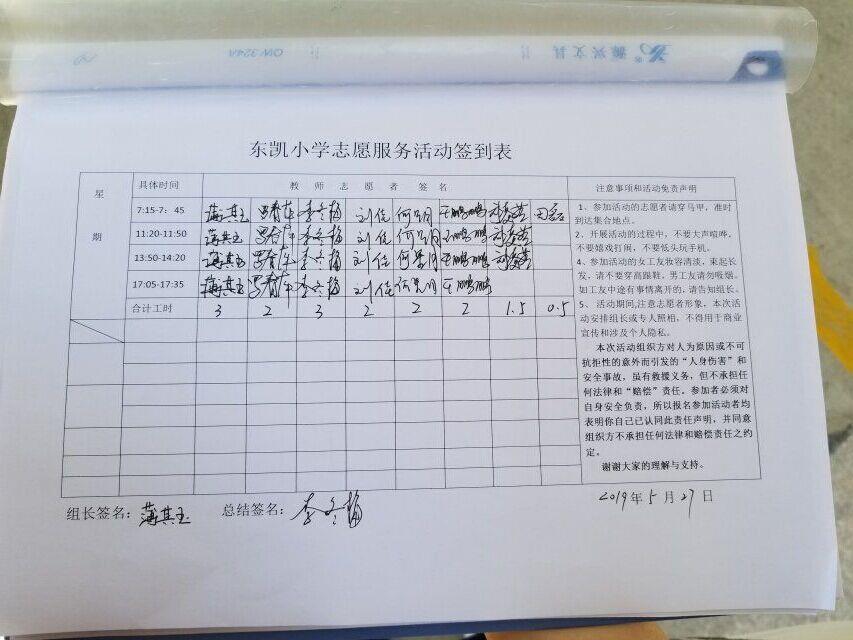 振兴文具
QIN 324A
东凯小学志愿服务活动签到表
星期 具体时间 教师志愿者签名 注意事项和活动免责声明
7:15-7：45 薄其玉 李冬梅 刘佳 王鹏鹏
11:20-11:50 薄其玉 李冬梅 刘佳 王鹏鹏
13:50-14:20 薄其玉 李冬梅 刘佳 王鹏鹏
17:05-17:35 薄其玉 李冬梅 刘佳 王鹏鹏
合计工时 3 2 3 2 2 2 1.5 0.5
1、参加活动的志愿者请穿马甲，准时
到达集合地点。
2、开展活动的过程中，不要大声喧哗，
不要嬉戏打闹，不要低头玩手机。
4、参加活动的女工友妆容清淡，束起长
发，请不要穿高跟鞋，男工友请勿吸烟。
如工友中途有事情离开的，请告知组长。
5、活动期间,注意志愿者形象，本次活
动安排组长或专人照相，不得用于商业
宣传和涉及个人隐私。
本次活动组织方对人为原因或不可
抗拒性的意外而引发的“人身伤害”和
安全事故，虽有救援义务，但不承担任
何法律和“赔偿”责任。参加者必须对
自身安全负责，所以报名参加活动者均
表明你自己已认同此责任声明，并同意
组织方不承担任何法律和赔偿责任之约
定。
谢谢大家的理解与支持。
组长签名：薄其玉 总结签名：李冬梅 2019年5月27日